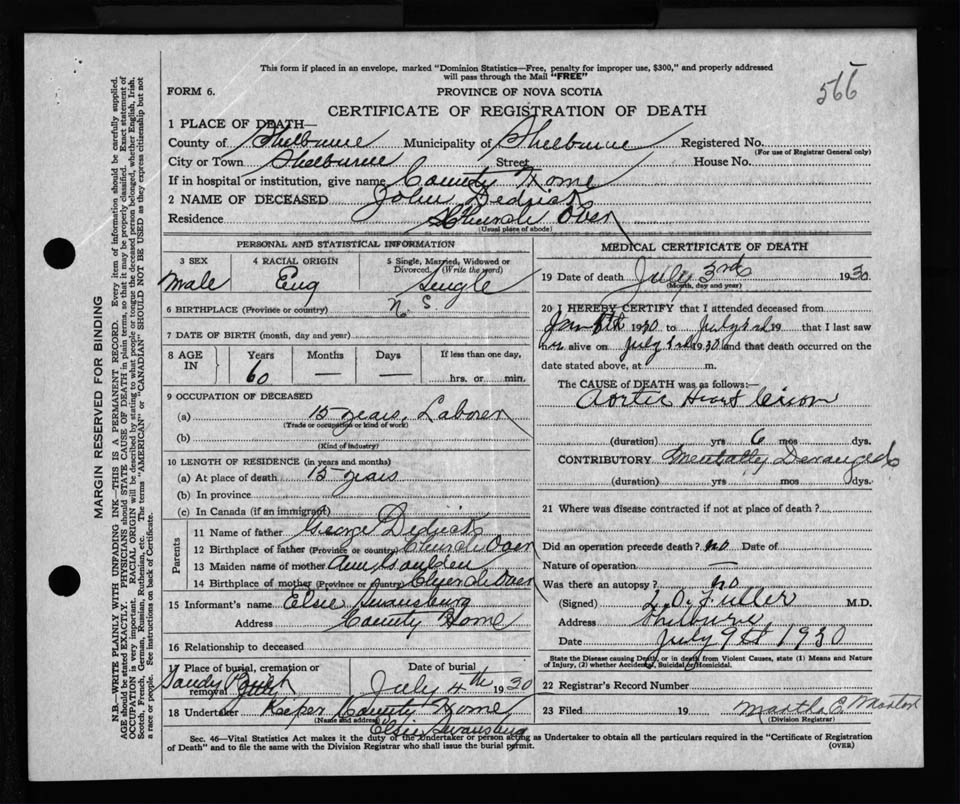 This form if placed in an envelope, marked "Dominion Statistics—Free, penalty for improper use, $300," and properly addressed
will pass through the Mail "FREE"
566
FORM 6.
PROVINCE OF NOVA SCOTIA
CERTIFICATE OF REGISTRATION OF DEATH
1 PLACE OF DEATH—
County of Shelburne Municipality of Shelburne Registered No.
(For use of Registrar General only)
City or Town Shelburne Street House No.
If in hospital or institution, give name County Home
2 NAME OF DECEASED John Dedrick
Residence Church Over
(Usual place of abode)
PERSONAL AND STATISTICAL INFORMATION
3 SEX 4 RACIAL ORIGIN 5 Single, Married, Widowed or
Divorced. (Write the word)
Male Eng Single
6 BIRTHPLACE (Province or country) N. S.
7 DATE OF BIRTH (month, day and year)
8 AGE IN Years Months Days If less than one day,
60 — — hrs. or min.
9 OCCUPATION OF DECEASED
(a) 15 years. Laborer
(Trade or occupation or kind of work)
(b)
(Kind of industry)
10 LENGTH OF RESIDENCE (in years and months)
(a) At place of death 15 years
(b) In province
(c) In Canada (if an immigrant)
Parents
11 Name of father George Dedrick
12 Birthplace of father (Province or country) Church Over
13 Maiden name of mother Ann Goulden
14 Birthplace of mother (Province or country) Church Over
15 Informant's name Elsie Swansburg
Address County Home
16 Relationship to deceased
17 Place of burial, cremation or removal Date of burial
Sandy Point July 4th 1930
18 Undertaker Keper County Home
(Name and address)
Elsie Swansburg
MEDICAL CERTIFICATE OF DEATH
19 Date of death July 3rd 1930
(Month, day and year)
20 I HEREBY CERTIFY that I attended deceased from
Jan 1930 to July 3rd 19 that I last saw
h alive on July 3rd 1930 and that death occurred on the
date stated above, at m.
The CAUSE of DEATH was as follows:—
Aortic Heart lesion
(duration) yrs 6 mos dys.
CONTRIBUTORY Mentally Deranged
(duration) yrs mos dys.
21 Where was disease contracted if not at place of death?
Did an operation precede death? no Date of
Nature of operation —
Was there an autopsy? no
(Signed) L. O. Fuller M.D.
Address Shelburne
Date July 9th 1930
State the Disease causing Death, or in death from Violent Causes, state (1) Means and Nature
of Injury, (2) whether Accidental, Suicidal or Homicidal.
22 Registrar's Record Number
23 Filed 19 Martha E.
(Division Registrar)
Sec. 46—Vital Statistics Act makes it the duty of the Undertaker or person acting as Undertaker to obtain all the particulars required in the "Certificate of Registration
of Death" and to file the same with the Division Registrar who shall issue the burial permit.
(OVER)
MARGIN RESERVED FOR BINDING
N.B.—WRITE PLAINLY WITH UNFADING INK—THIS IS A PERMANENT RECORD. Every item of information should be carefully supplied.
AGE should be stated EXACTLY. PHYSICIANS should STATE CAUSE OF DEATH in plain terms, so that it may be properly classified. Exact statement of
OCCUPATION is very important. RACIAL ORIGIN will be described by stating to what people or tongue the deceased person belonged, whether English, Irish,
Scotch, French, German, Russian, Ruthenian, etc. The terms "AMERICAN" or "CANADIAN" SHOULD NOT BE USED as they express citizenship but not
a race or people. See instructions on back of Certificate.